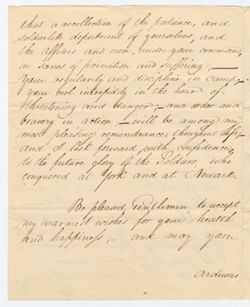 that a recollection of the patience, and
soldierlike deportment of yourselves, and
the officers and men, under your command,
in scenes of privation and suffering;—
Your regularity and discipline in camp;—
your cool intrepidity in the hour of
threatening and danger;— and order and
bravery in action;— will be among my
most pleasing remembrances through life;
and I look forward, with confidence,
to the future glory of the Soldiers who
conquered at York and at Newark.
Be pleased, Gentlemen, to accept
my warmest wishes for your health
and happiness, and may you